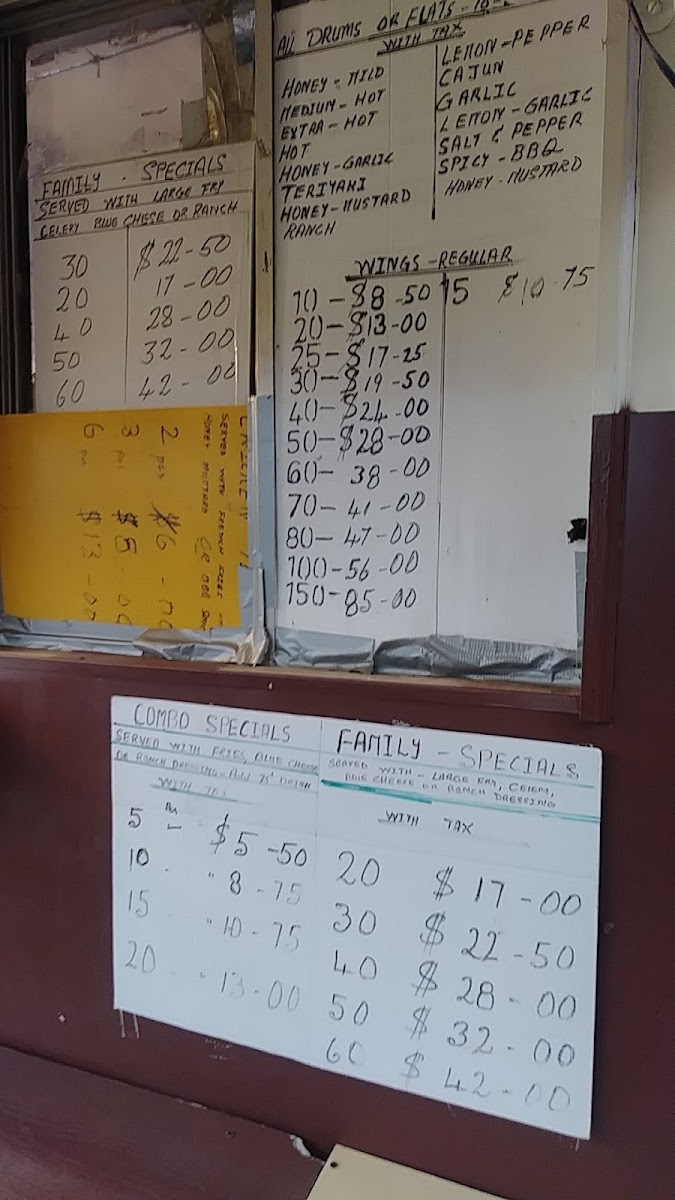 FAMILY - SPECIALS
SERVED WITH LARGE FRY
CELERY BLUE CHESE OR RANCH
30 $22-50
20 17-00
40 28-00
50 32-00
60 42-00
SERVED WITH FRENCH FRIES
HONEY MUSTARD OR BBQ
2 pcs $6-00
3 pcs $5-00
6 pcs $13-00
All DRUMS OR FLATS-
WITH TAX
HONEY-MILD
MEDIUM-HOT
EXTRA-HOT
HOT
HONEY-GARLIC
TERIYAKI
HONEY-MUSTARD
RANCH
LEMON-PEPPER
CAJUN
GARLIC
LEMON-GARLIC
SALT & PEPPER
SPICY-BBQ
HONEY-MUSTARD
WINGS-REGULAR
10-$8-50 15 $10-75
20-$13-00
25-$17-25
30-$19-50
40-$24-00
50-$28-00
60-38-00
70-41-00
80-47-00
100-56-00
150-85-00
COMBO SPECIALS
SERVED WITH FRIES, BLUE CHEESE
OR RANCH DRESSING-Add 75¢
WITH TAX
5 Pcs $5-50
10 " 8-75
15 " 10-75
20 " 13-00
FAMILY-SPECIALS
SERVED WITH-LARGE FRY, CELERY,
BLUE CHEESE OR RANCH DRESSING
WITH TAX
20 $17-00
30 $22-50
40 $28-00
50 $32-00
60 $42-00